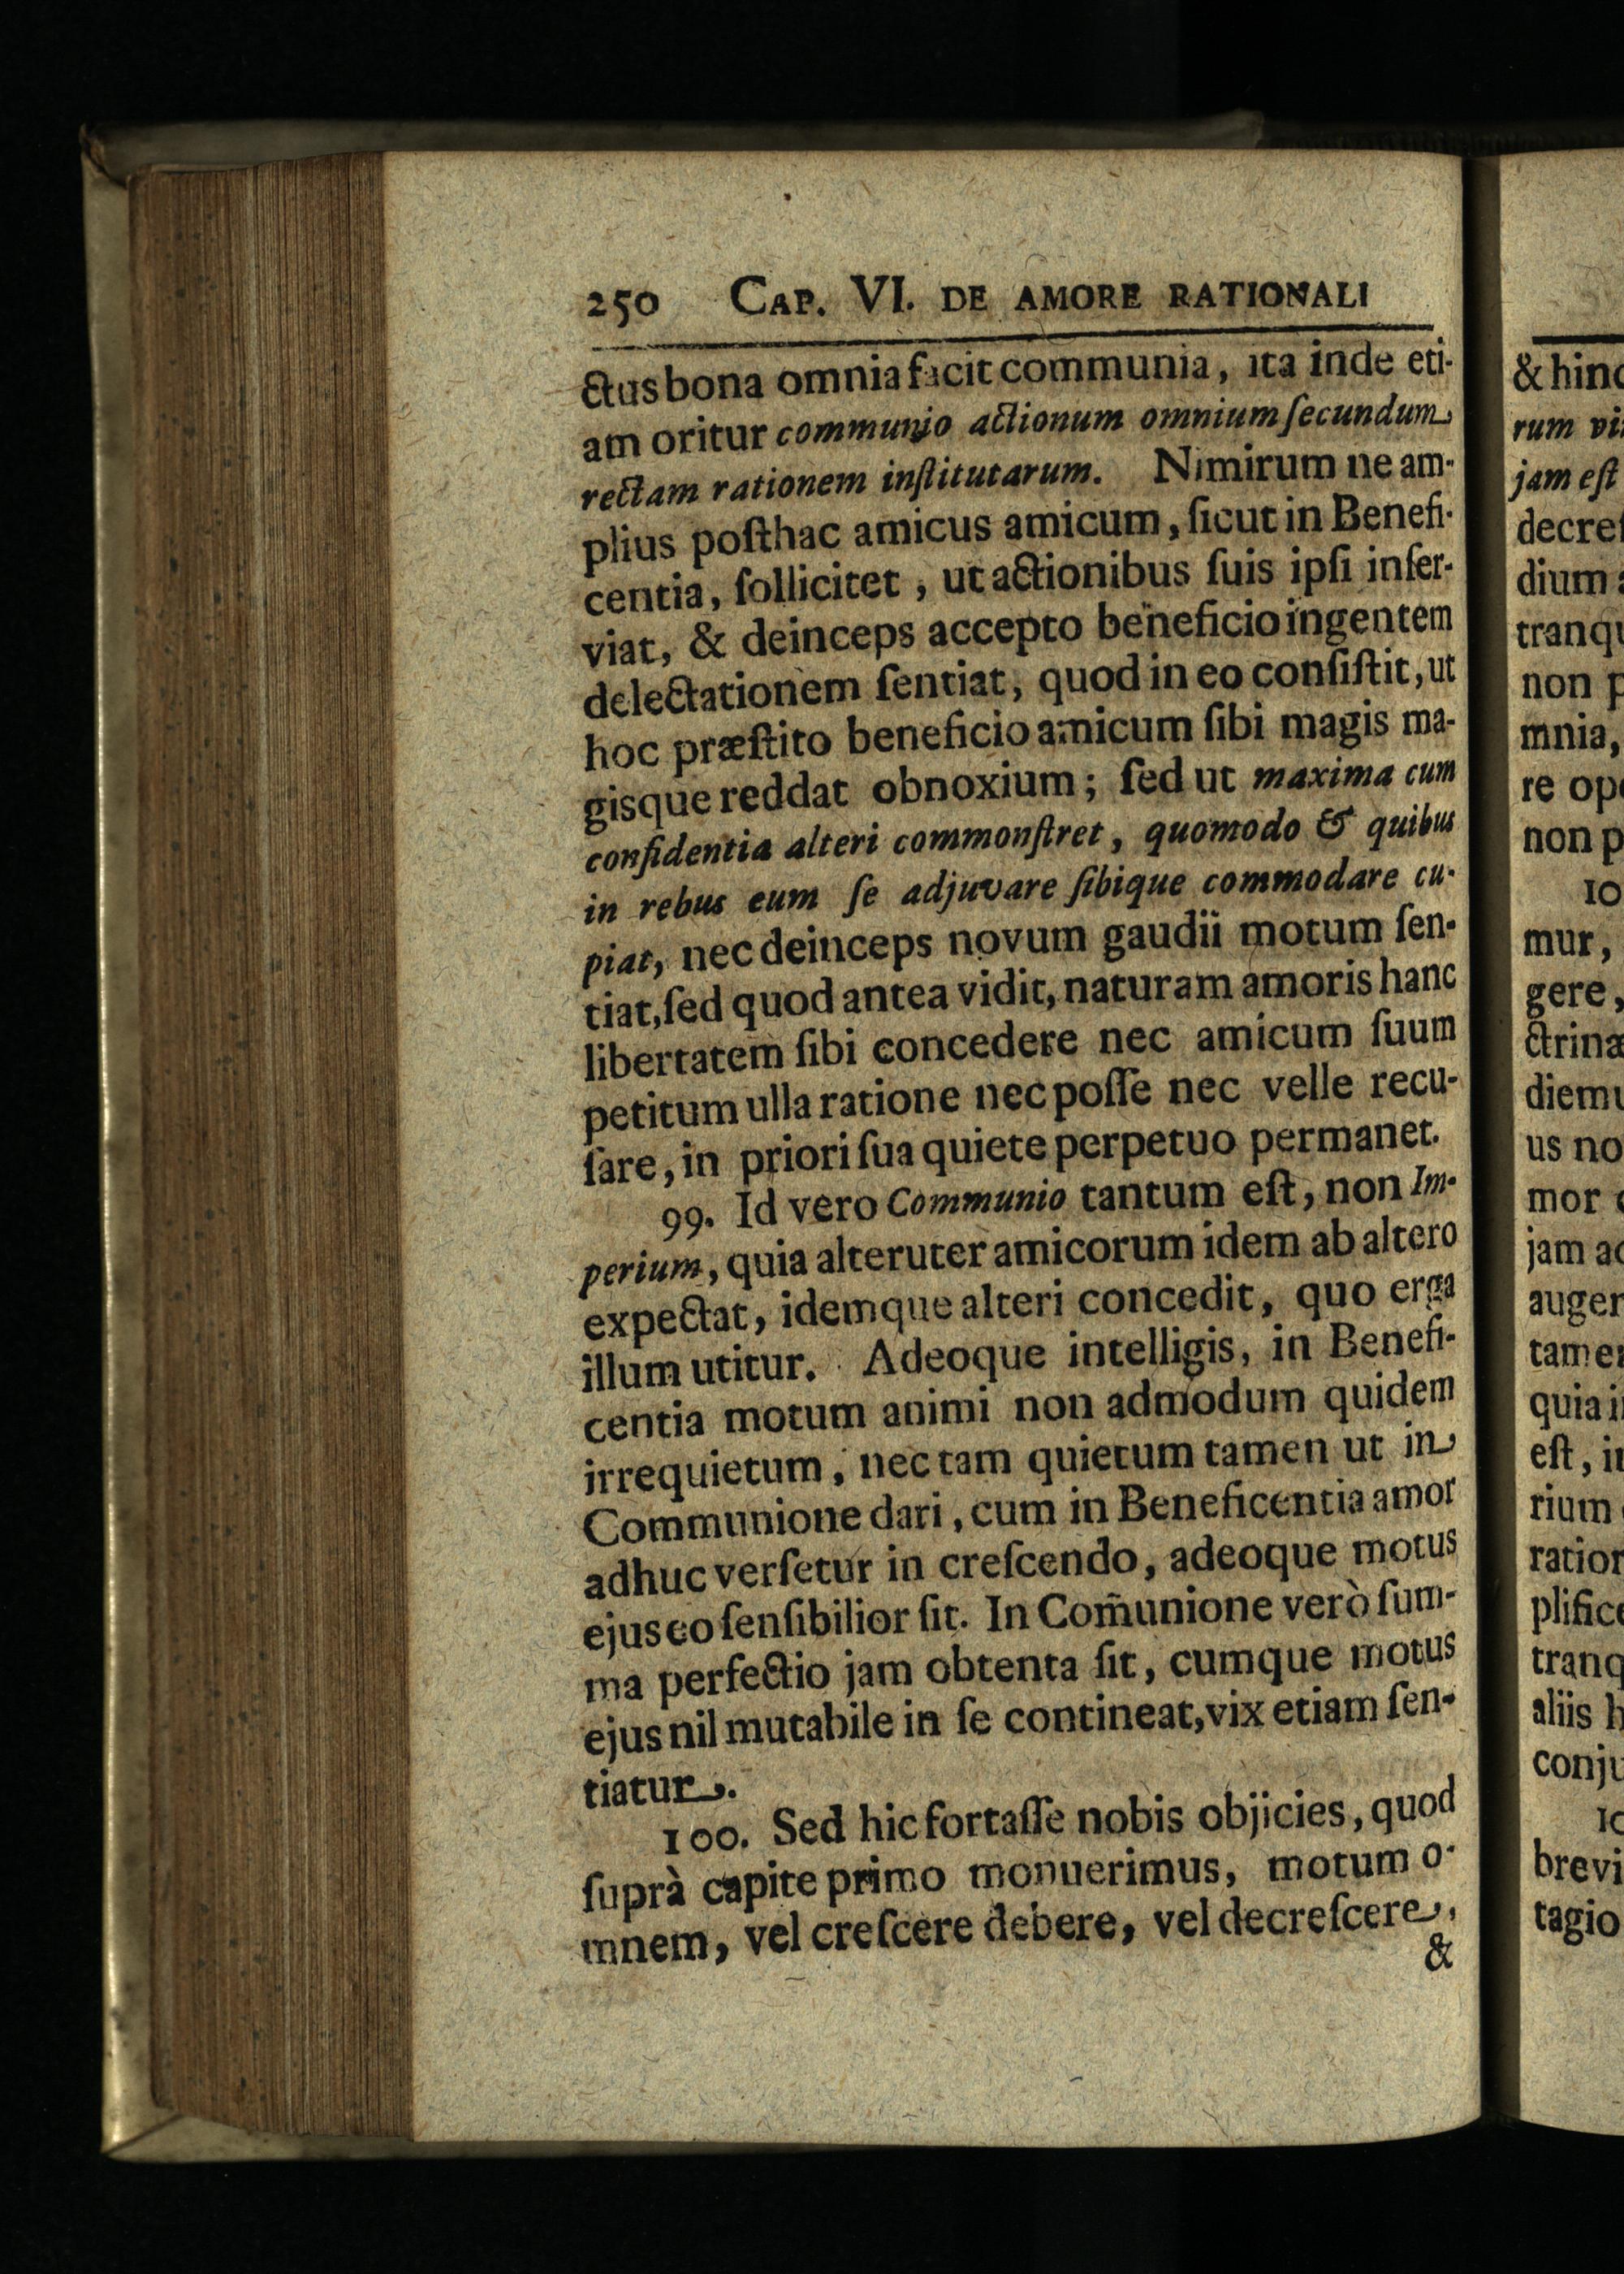 250 CAP. VI. DE AMORE RATIONALI
ctus bona omnia facit communia, ita inde eti-
am oritur communio actionum omnium ſecundum
rectam rationem inſtitutarum. Nimirum ne am-
plius poſthac amicus amicum, ſicut in Benefi-
centia, ſollicitet, ut actionibus ſuis ipſi inſer-
viat, & deinceps accepto beneficio ingentem
delectationem ſentiat, quod in eo conſiſtit, ut
hoc præſtito beneficio amicum ſibi magis ma-
gisque reddat obnoxium; ſed ut maxima cum
confidentia alteri commonſtret, quomodo & quibus
in rebus eum ſe adjuvare ſibique commodare cu-
piat, nec deinceps novum gaudii motum ſen-
tiat, ſed quod antea vidit, naturam amoris hanc
libertatem ſibi concedere nec amicum ſuum
petitum ulla ratione nec poſſe nec velle recu-
ſare, in priori ſua quiete perpetuo permanet.
99. Id vero Communio tantum eſt, non Im-
perium, quia alteruter amicorum idem ab altero
expectat, idemque alteri concedit, quo erga
illum utitur. Adeoque intelligis, in Benefi-
centia motum animi non admodum quidem
irrequietum, nec tam quietum tamen ut in
Communione dari, cum in Beneficentia amor
adhuc verſetur in creſcendo, adeoque motus
ejus eo ſenſibilior ſit. In Com̃unione verò ſum-
ma perfectio jam obtenta ſit, cumque motus
ejus nil mutabile in ſe contineat, vix etiam ſen-
tiatur.
100. Sed hic fortaſſe nobis objicies, quod
ſuprà capite primo monuerimus, motum o-
mnem, vel creſcere debere, vel decreſcere,
&
& hinc
rum
jam eſt
dium
non
mnia,
re
non
10
mur,
gere,
us
mor
jam
quia
eſt,
rium
aliis